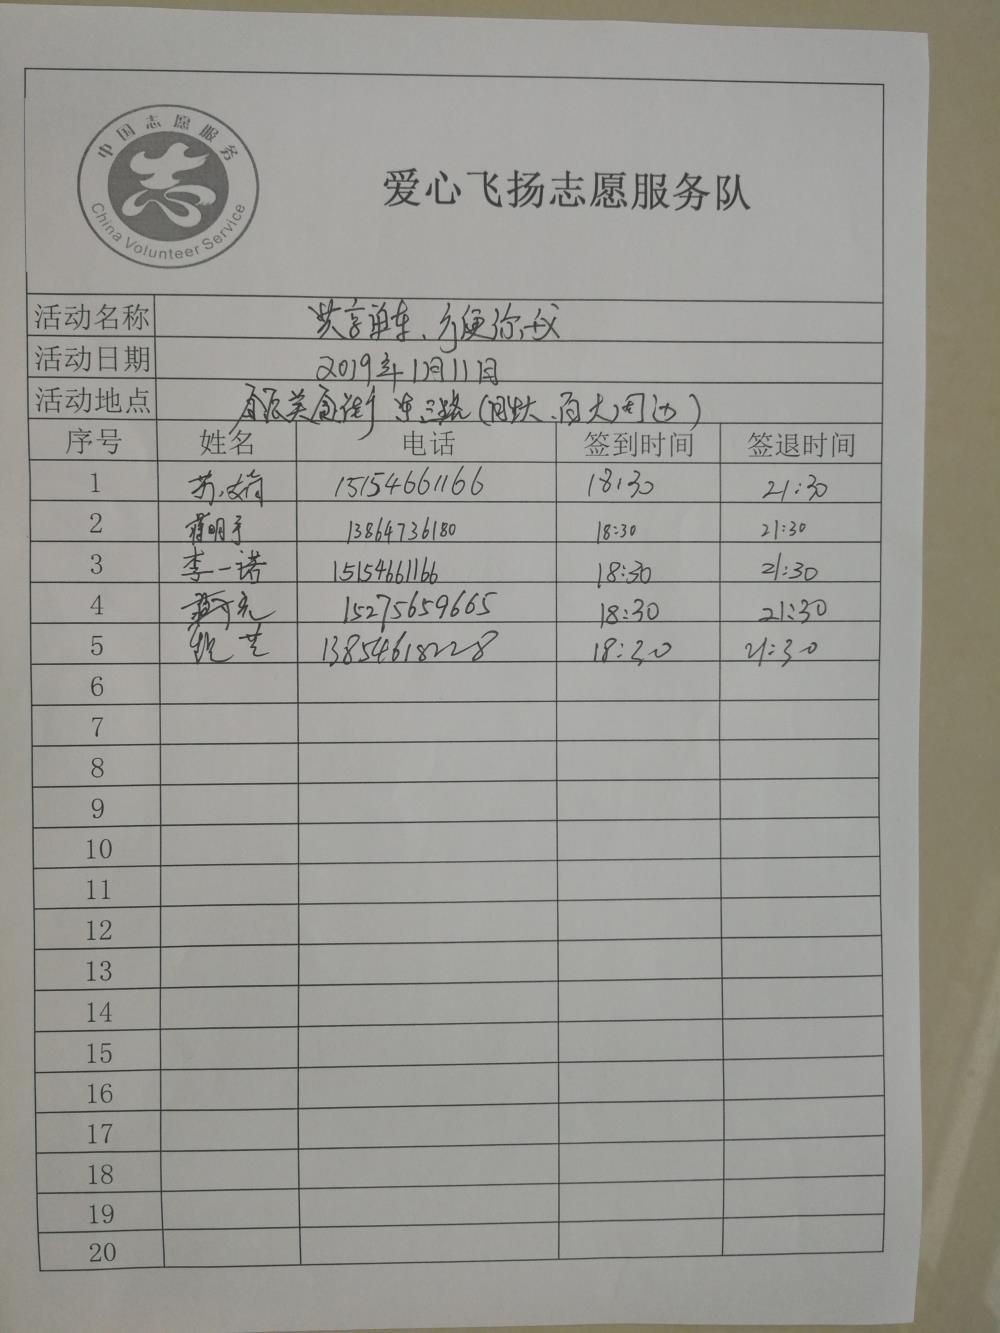 中国志愿服务
China Volunteer Service
爱心飞扬志愿服务队
活动名称 共享单车、方便你我
活动日期 2019年11月11日
活动地点 美食街 东三路 百大周边)
序号 姓名 电话 签到时间 签退时间
1 15154661166 18:30 21:30
2 蒋明宇 13864736180 18:30 21:30
3 李一诺 15154661166 18:30 21:30
4 15275659665 18:30 21:30
5 13854618228 18:30 21:30
6
7
8
9
10
11
12
13
14
15
16
17
18
19
20